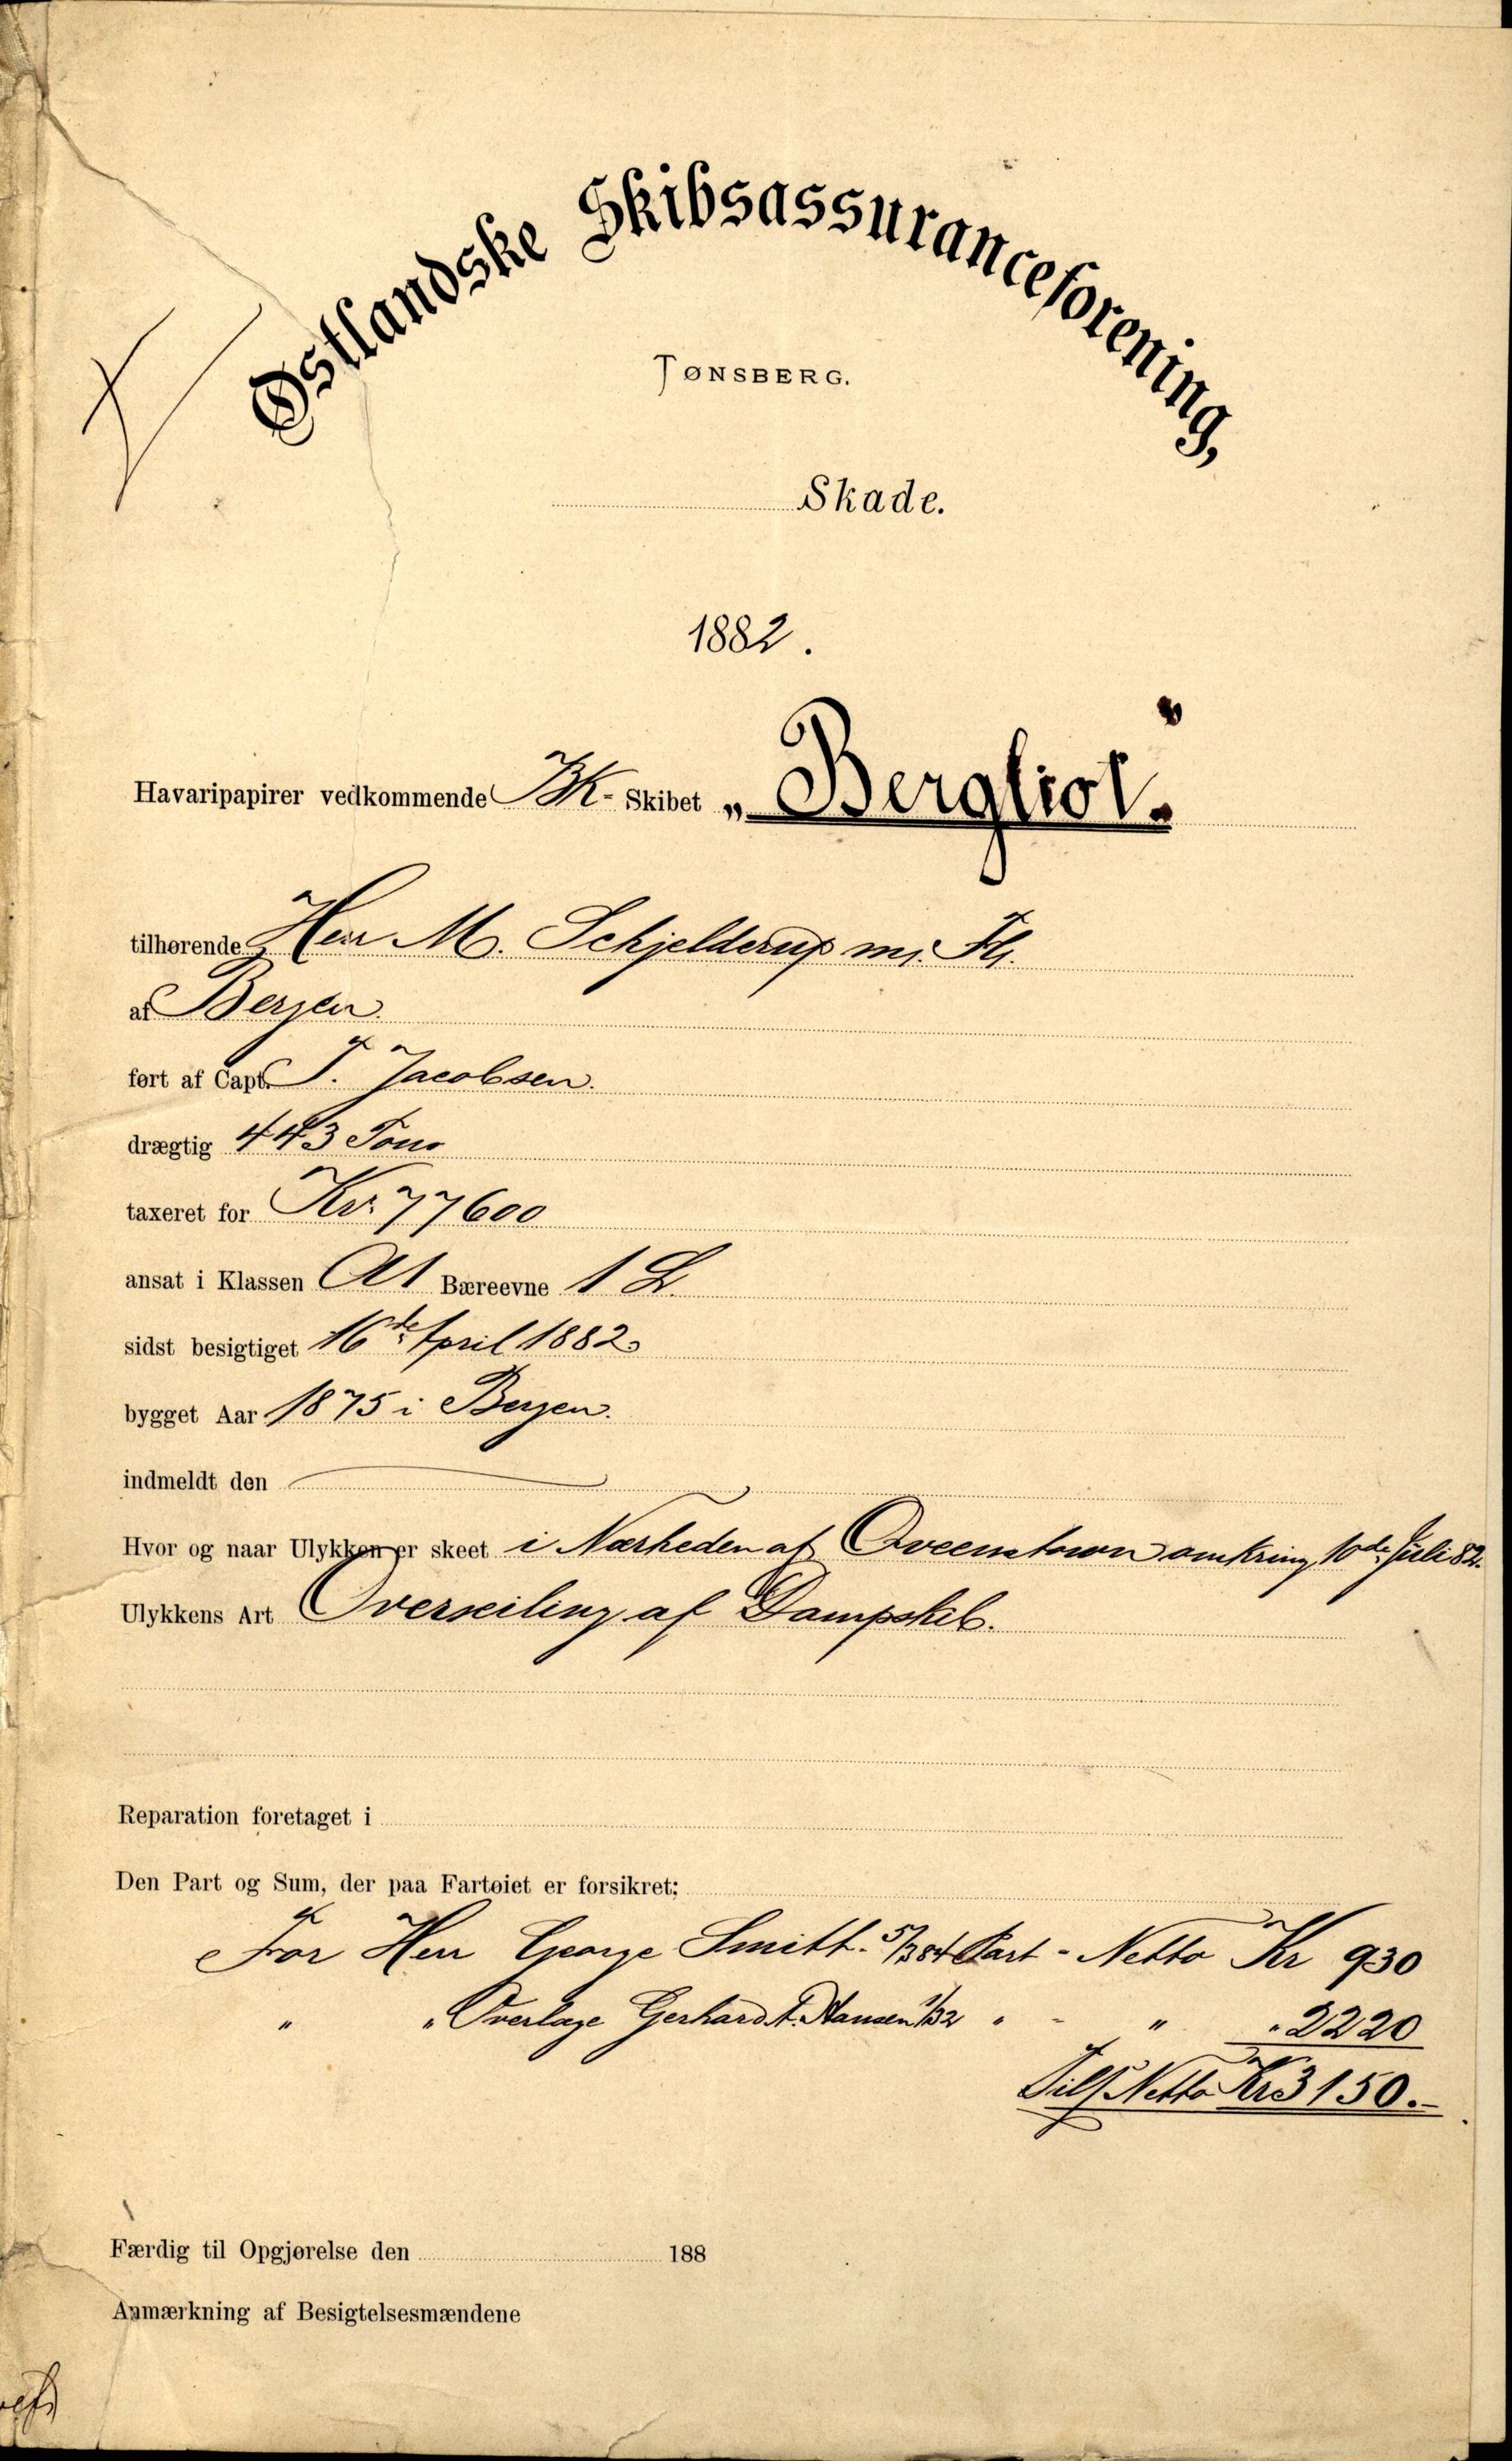 Østlandske Skibsassuranceforening,
TØNSBERG.
Skade.
1882.
Havaripapirer vedkommende BK- Skibet „Bergliot."
tilhørende Herr M. Schjelderup m. Fl.
af Bergen.
ført af Capt. J. Jacobsen.
drægtig 443 Tons
taxeret for Kr. 77600
ansat i Klassen A1 Bæreevne 1 L.
sidst besigtiget 16de April 1882.
bygget Aar 1875 i Bergen.
indmeldt den
Hvor og naar Ulykken er skeet i Nærheden af Qveenstown omkring 10de Juli 82.
Ulykkens Art Overseiling af Dampskib.
Reparation foretaget i
Den Part og Sum, der paa Fartøiet er forsikret;
For Herr George Smitt. 5/384 Part - Netto Kr 930
" " Overlæge Gerhard A. Hansen 1/32 " - " " 2220
Tils. Netto Kr 3150.-
Færdig til Opgjørelse den 188
Anmærkning af Besigtelsesmændene